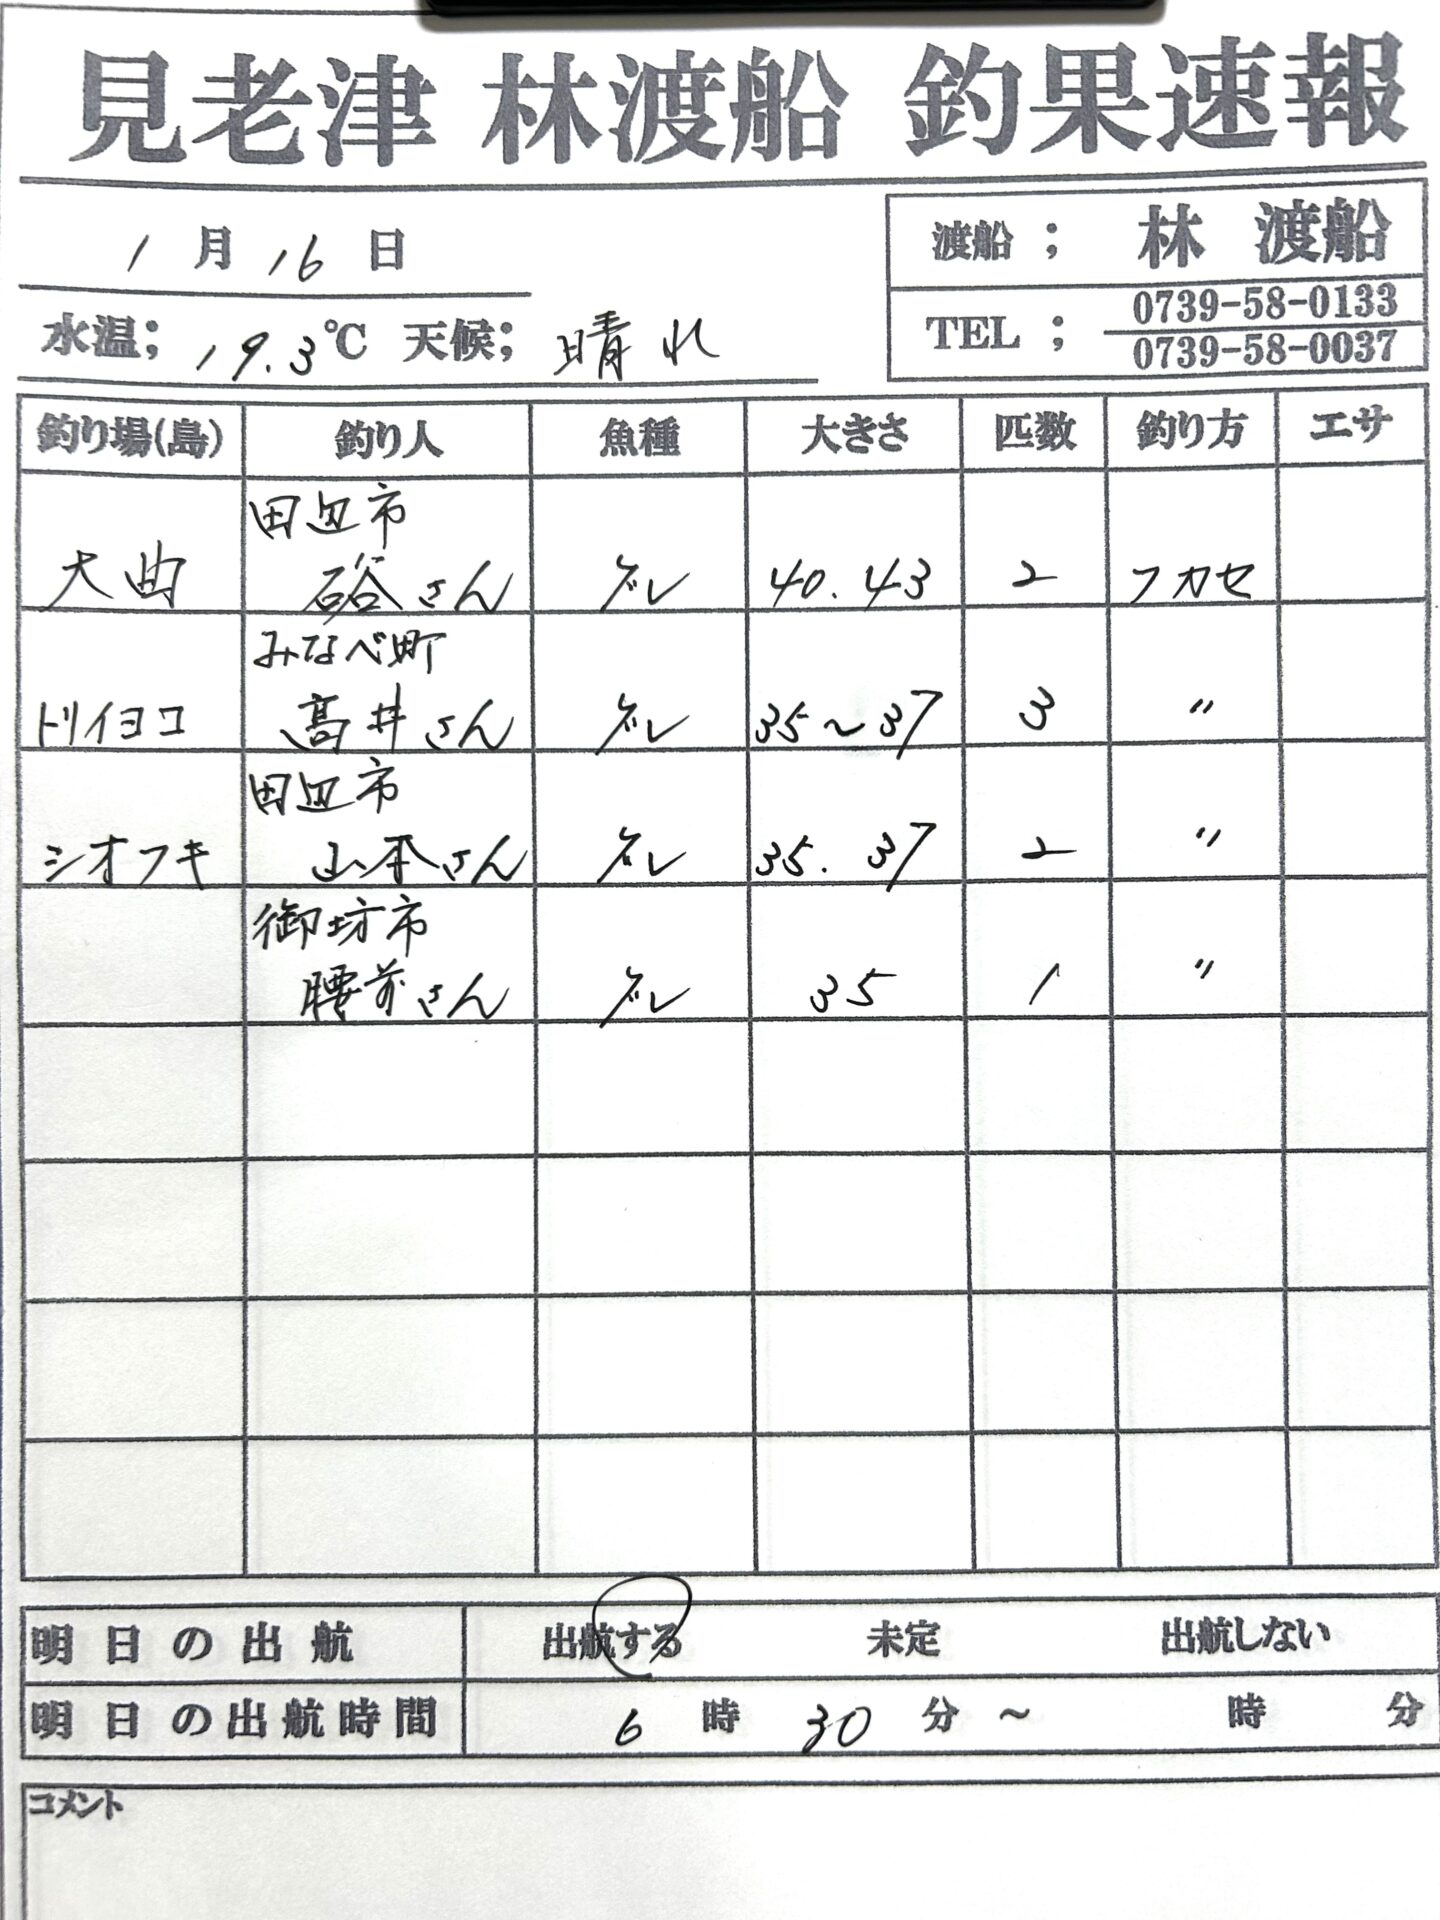 見老津 林渡船 釣果速報
1月16日
渡船；林 渡船
水温；19.3℃ 天候；晴れ
TEL；0739-58-0133
0739-58-0037
釣り場(島) 釣り人 魚種 大きさ 匹数 釣り方 エサ
田辺市
大曲 硲さん グレ 40.43 2 フカセ
みなべ町
トリイヨコ 髙井さん グレ 35~37 3 〃
田辺市
シオフキ 山本さん グレ 35.37 2 〃
御坊市
腰前さん グレ 35 1 〃
明日の出航 出航する 未定 出航しない
明日の出航時間 6時30分~ 時 分
コメント